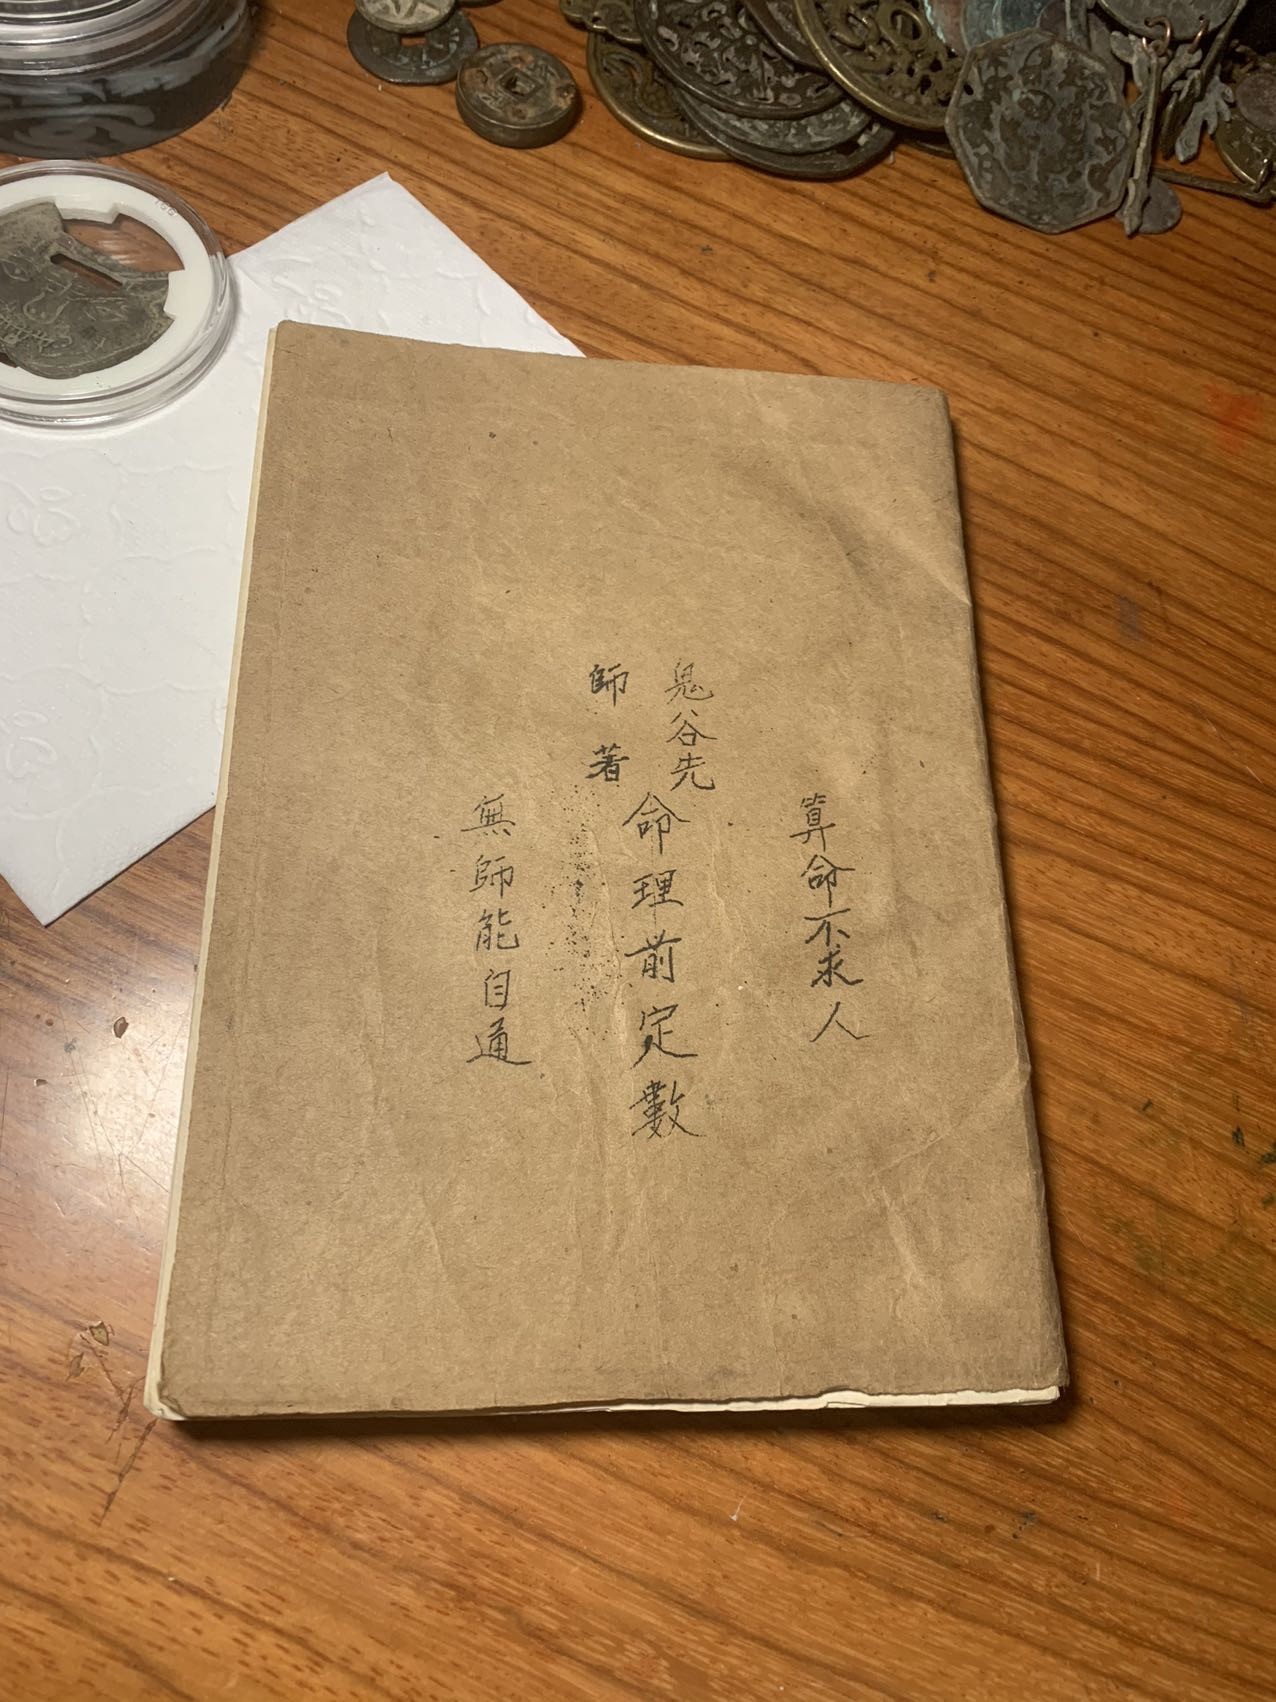 算命不求人
鬼谷先
師著
命理前定數
無師能自通